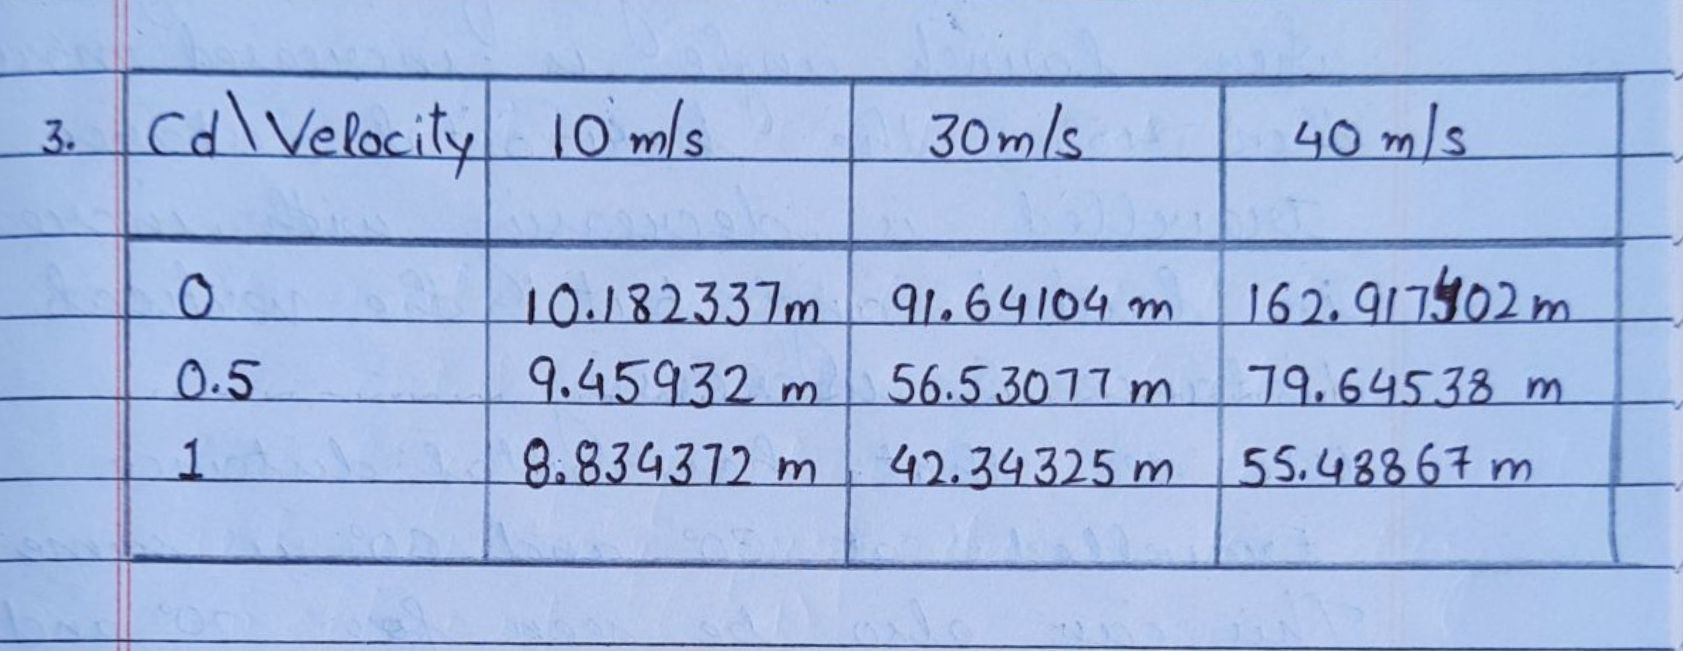 3. Cd\Velocity 10 m/s 30m/s 40 m/s
0 10.182337m 91.64104 m 162.917402m
0.5 9.45932 m 56.53077 m 79.64538 m
1 8.834372 m 42.34325 m 55.48867 m